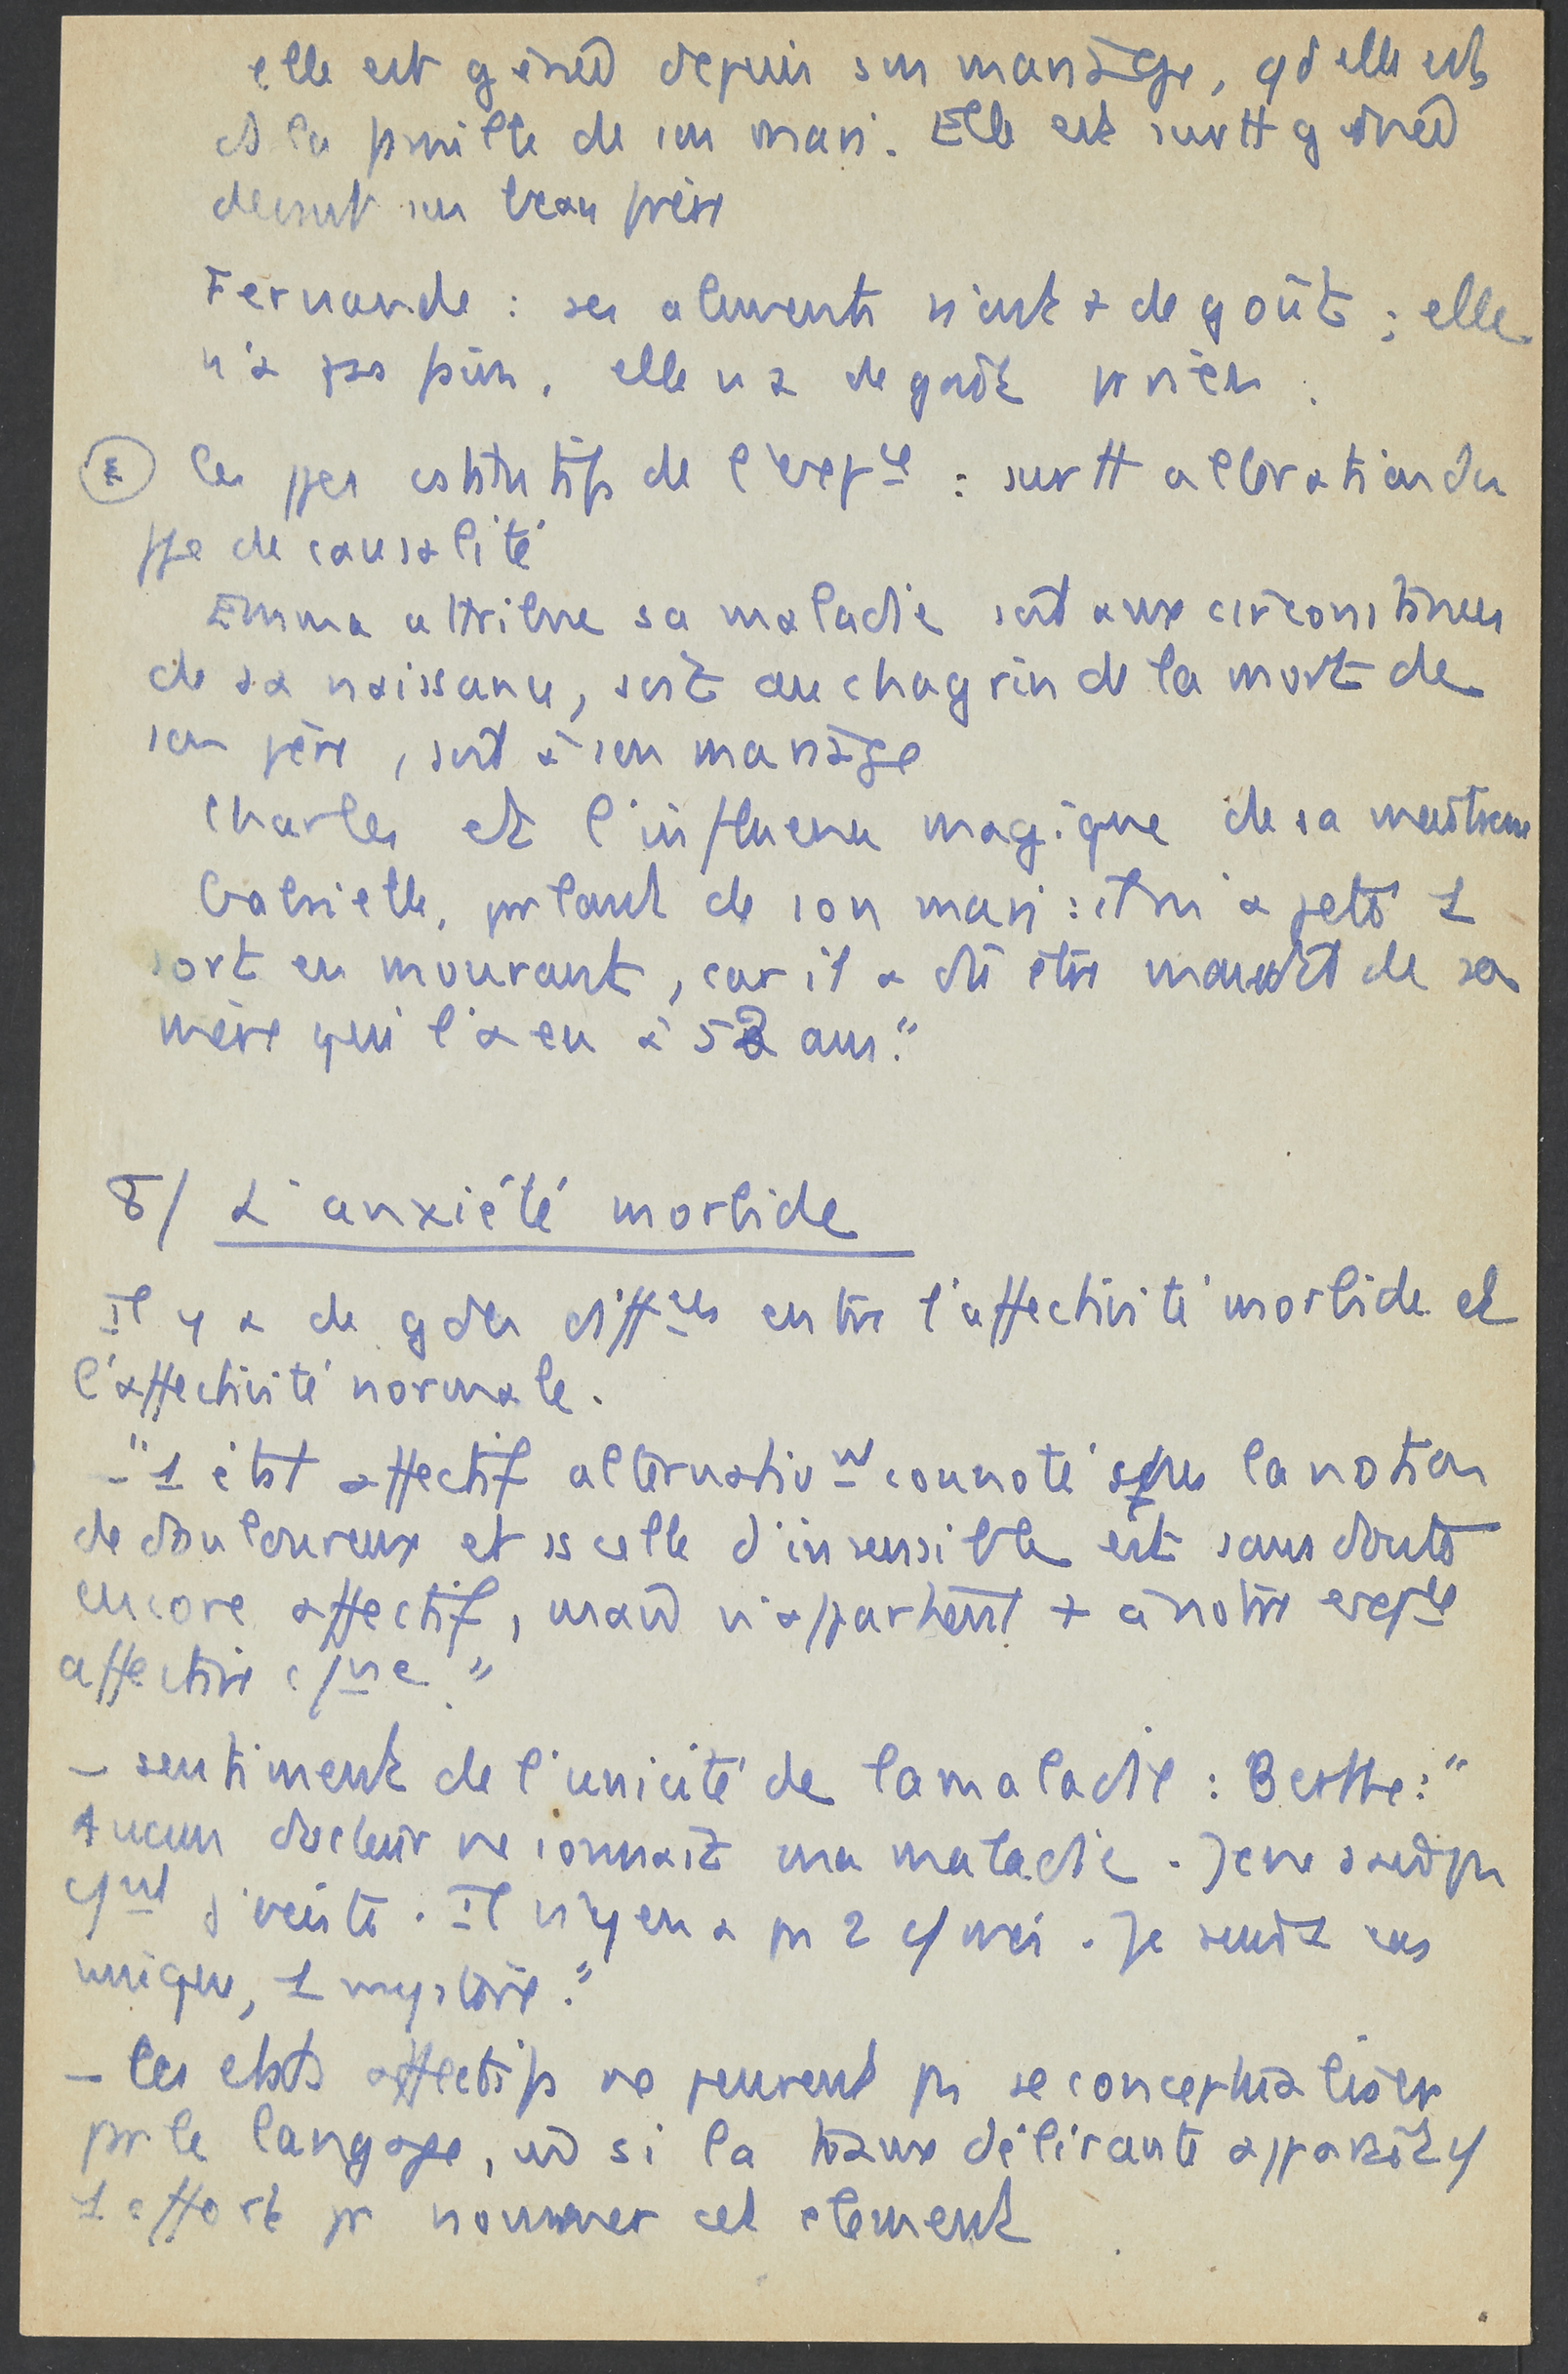 elle est gênée depuis son mariage, qd elle est
ds la famille de son mari. Elle est surtt gênée
devant son beau père
Fernande : ses aliments n'ont + de goût ; elle
n'a pas faim, elle n'a de goût pr rien.
E les ppes constitutifs de l'expce : surtt altération du
ppe de causalité
Emma attribue sa maladie soit aux circonstances
de sa naissance, soit au chagrin de la mort de
son père, soit à son mariage
Charles et l'influence magique de sa maîtresse
Gabrielle, parlant de son mari : il m'a jeté 1
sort en mourant, car il a dû être maudit de sa
mère qui l'a eu à 52 ans."
8/ L'anxiété morbide
Il y a de gdes diffces entre l'affectivité morbide et
l'affectivité normale.
- "1 état affectif alternativt connoté sous la notion
de douloureux et ss celle d'insensible est sans doute
encore affectif, mais n'appartient + à notre expce
affective cfne."
- sentiment de l'unicité de la maladie : Berthe : "
Aucun docteur ne connaît ma maladie. Je ne sais pas
cfnt j'existe. Il n'y en a pas 2 cf moi. Je suis 1 cas
unique, 1 mystère."
- les états affectifs ne peuvent pas se conceptualiser
par le langage, si la délirante apparaît cf
1 effort pr nommer cet élément